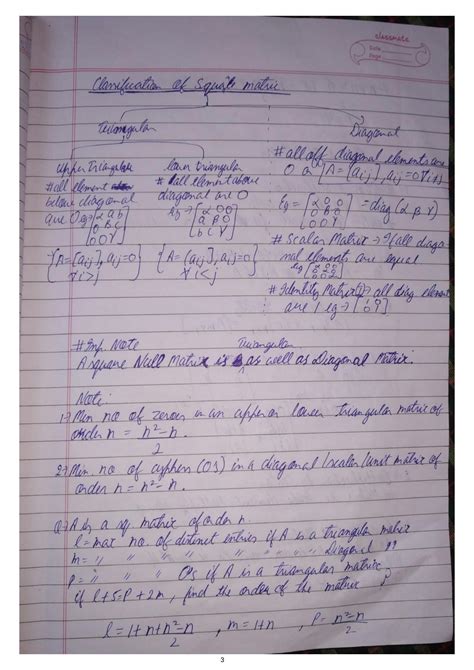 classmate
Date
Page
Classification of Square matrix
Triangular
Diagonal
Upper Triangular
# all element
below diagonal
are 0 eg→ [α a b
0 β c
0 0 γ]
{A=[aij], aij=0}
∀ i>j
lower triangular
# all element above
diagonal are 0
eg→ [α 0 0
a β 0
b c γ]
{A=[aij], aij=0}
∀ i<j
# all off diagonal elements are
0 or A=[aij], aij=0 ∀ i≠j
Eg = [α 0 0
0 β 0
0 0 γ] = diag(α β γ)
# Scalar Matrix → If all diago
nal elements are equal
eg
# Identity Matrix(I)→ all diag element
are 1 eg→ [1 0
0 1]
# Imp. Note
Triangular
A square Null Matrix is as well as Diagonal Matrix.
Note:
1→ Min no of zeros in an upper or lower triangular matrix of
order n = n²-n
2
2→ Min. no of cyphers (0s) in a diagonal/scalar/unit matrix of
order n = n²-n.
Q→ A is a sq. matrix of order n.
l = max no. of distinct entries if A is a triangular matrix
m = " " " " " " Diagonal "
p = " " " 0's if A is a triangular matrix
if l+5=P+2m, find the order of the matrix?
l = 1+n+n²-n
2
, m = 1+n , P = n²-n
2
3